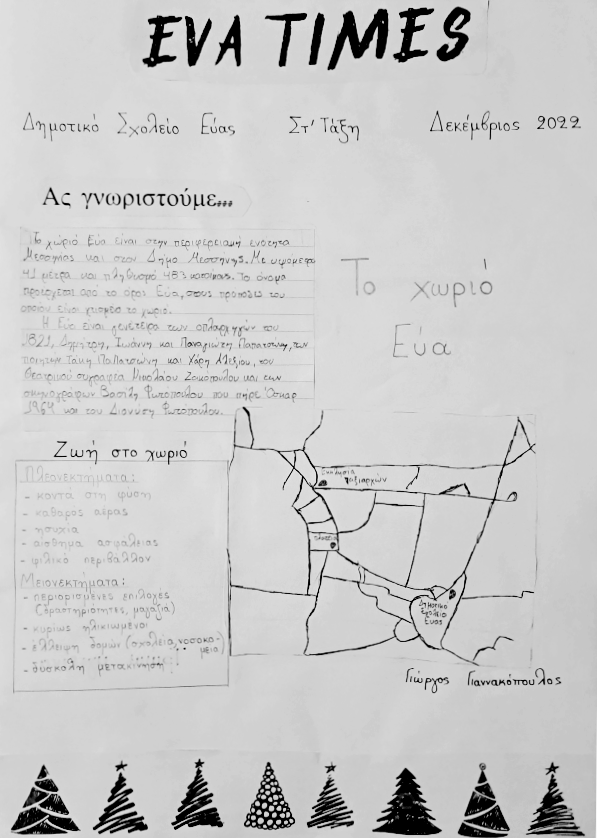 EVA TIMES
Δημοτικό Σχολείο Εύας Στ' Τάξη Δεκέμβριος 2022
Ας γνωριστούμε...
Το χωριό Εύα είναι στην περιφερειακή ενότητα
Μεσσηνίας και στον Δήμο Μεσσήνης. Με υψόμετρο
41 μέτρα και πληθυσμό 453 κατοίκους. Το όνομα
προέρχεται από το όρος Εύα, στους πρόποδες του
οποίου είναι χτισμένο το χωριό.
Η Εύα είναι γενέτειρα των οπλαρχηγών του
1821, Δημήτρη, Ιωάννη και Παναγιώτη Παπατσώνη, των
ποιητών Τάκη Παπατσώνη και Χάρη Αλεξίου, του
θεατρικού συγγραφέα Νικολάου Ζακοπούλου και των
σκηνογράφων Βασίλη Φωτόπουλου που πήρε Όσκαρ
1964 και του Διονύση Φωτόπουλου.
Το χωριό
Εύα
Ζωή στο χωριό
Πλεονεκτήματα:
- κοντά στη φύση
- καθαρός αέρας
- ησυχία
- αίσθημα ασφάλειας
- φιλικό περιβάλλον
Μειονεκτήματα:
- περιορισμένες επιλογές
(δραστηριότητες, μαγαζιά)
- κυρίως ηλικιωμένοι
- έλλειψη δομών (σχολεία, νοσοκο-
μεία)
- δύσκολη μετακίνηση
Εκκλησία
Ταξιαρχών
πλατεία
Δημοτικό
Σχολείο
Εύας
Γιώργος Γιαννακόπουλος